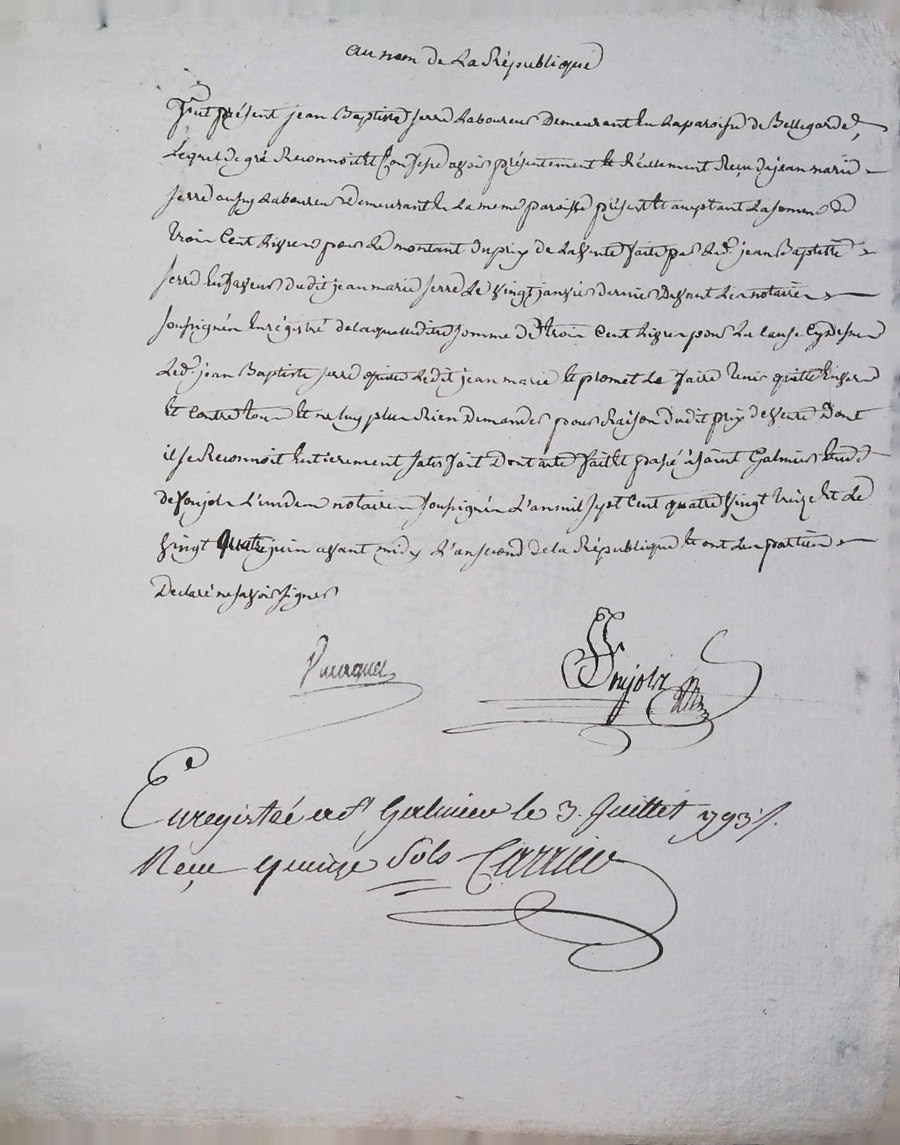 au nom de La République
Fut présent jean Baptiste serre Laboureur Demeurant En La paroisse de Bellegarde,
Lequel de gré Reconnoit et Confesse avoir présentement et Réellement Reçu de jean marie
serre aussy Laboureur demeurant En La meme paroisse présent et acceptant La somme de
trois Cent Livres pour Le montant du prix de La vente faite par Led. jean Baptiste
serre En faveur dudit jean marie serre Le vingt janvier dernier Devant Les notaires
soussignés Enregistré de laquelle ditte somme de trois Cent Livres pour La Cause Cy dessus
Led. jean Baptiste serre quitte Ledit jean marie et promet Le faire tenir quitte Envers
Et Contre tous Et ne luy plus Rien Demander pour Raison dudit prix de vente Dont
il se Reconnoit Entierement satisfait Dont acte fait Et passé à saint Galmier Etude
de Foujols L'un des notaires soussignés L'an mil sept Cent quatre vingt treize Et Le
vingt quatre juin avant midy L'an second de la République Et ont Les parties
Declaré ne savoir signer
Foujols
Enregistré a St Galmier le 3. Juillet 1793.
Reçu quinze Sols Carrier